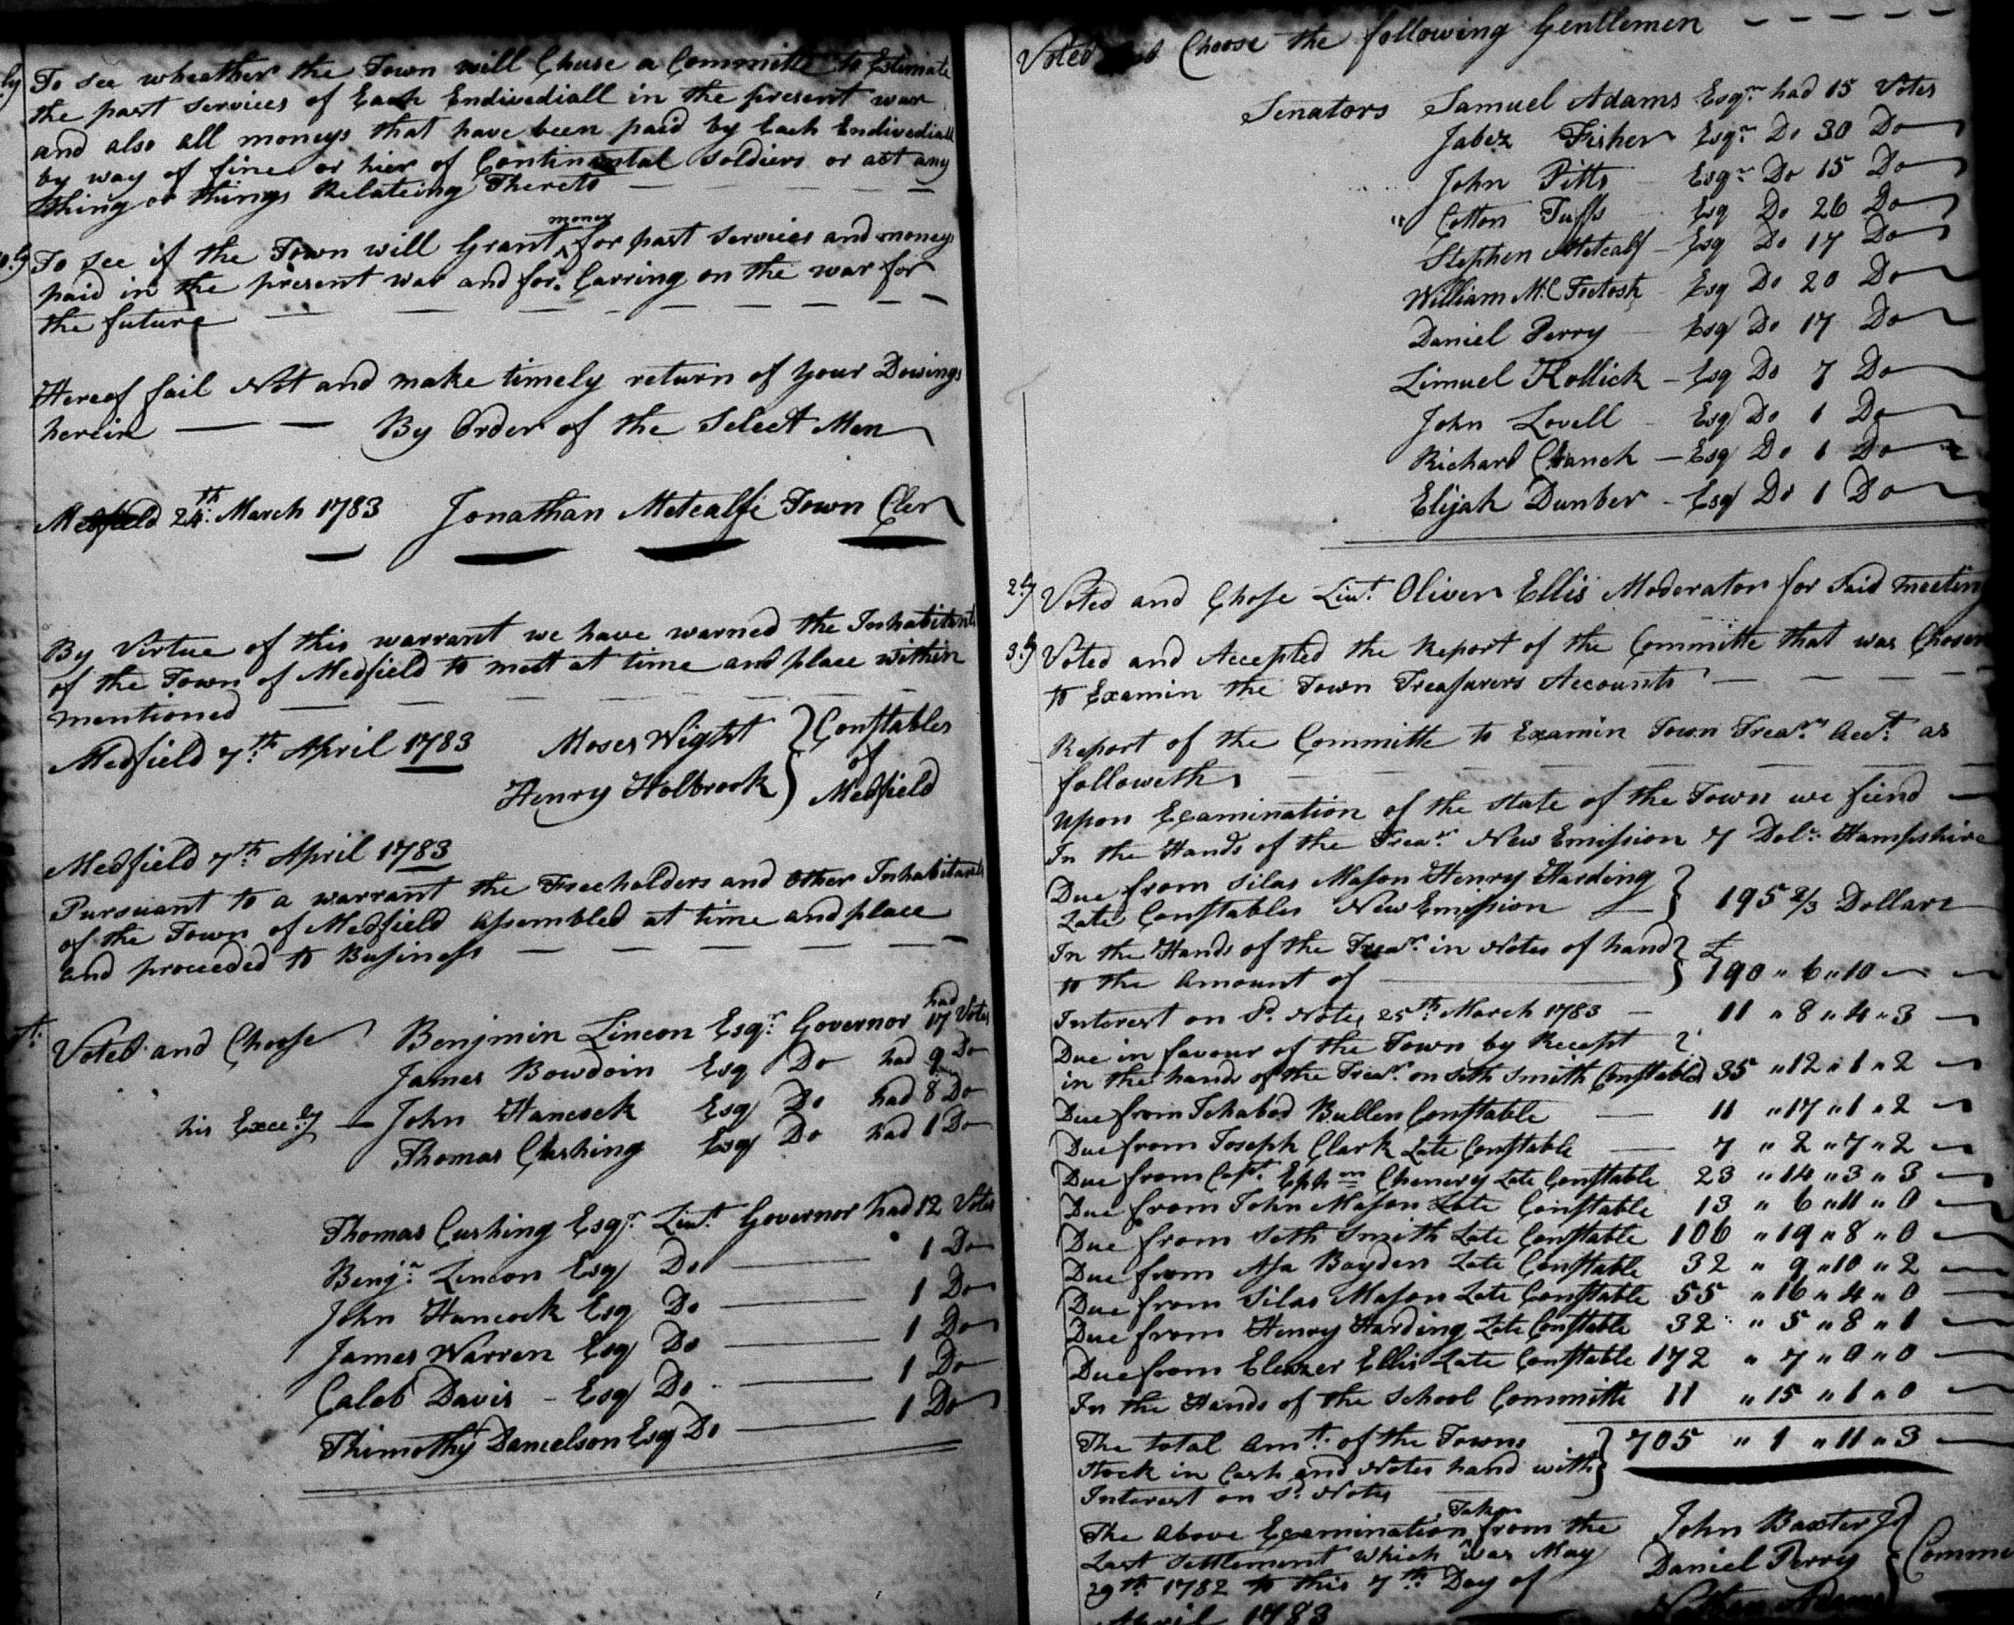 ly To see wheather the Town will Chuse a Committe to Estimate
the past services of Each Endivediall in the present war
and also all moneys that have been paid by Each Endivediall
by way of fines or hier of Continental Soldiers or act any
thing or things Relateing Thereto
To see if the Town will Grant money for past services and moneys
paid in the present war and for Carring on the war for
the future
Hereof fail Not and make timely return of your Dowings
herein By Order of the Select Men
Medfield 24th March 1783 Jonathan Metcalfe Town Cler
By Virtue of this warrant we have warned the Inhabitants
of the Town of Medfield to mett at time and place within
mentioned
Medfield 7th April 1783 Moses Wight } Constables
of
Henry Holbrook Medfield
Medfield 7th April 1783
Pursuant to a warrant the Freeholders and Other Inhabitants
of the Town of Medfield Assembled at time and place
and proceeded to Business
Voted and Choose Benjmin Lincon Esqr Governor had 17 Votes
James Bowdoin Esq Do had 9 Do
his Excely John Hancock Esq Do had 8 Do
Thomas Cushing Esq Do had 1 Do
Thomas Cushing Esqr Liut Governor had 12 Votes
Benjn Lincon Esq Do 1 Do
John Hancock Esq Do 1 Do
James Warren Esq Do 1 Do
Caleb Davis - Esq Do 1 Do
Thimothy Danielson Esq Do 1 Do
Voted Choose the following Gentlemen
Senators Samuel Adams Esqr had 15 Votes
Jabez Fisher Esqr Do 30 Do
John Pitts Esqr Do 15 Do
" Cotton Tuffs Esq Do 26 Do
Stephen Metcalf - Esq Do 17 Do
William Mc Factosh Esq Do 20 Do
Daniel Perry Esq Do 17 Do
Limuel Kollick - Esq Do 7 Do
John Lovell Esq Do 1 Do
Richard Cranch - Esq Do 1 Do
Elijah Dunber - Esq Do 1 Do
2ly Voted and Chose Liut Oliver Ellis Moderator for Said meeting
3ly Voted and Accepted the Report of the Committe that was Chosen
to Examin the Town Treasurers Accounts
Report of the Committe to Examin Town Trear Acct as
followeth
Upon Examination of the State of the Town we fiend
In the Hands of the Trear New Emission 7 Dolr Hampshire
Due from Silas Mason Henry Harding } 195 2/3 Dollars
Late Constables New Emission
In the Hands of the Trear in Notes of hand } £
to the Amount of 190 " 6 " 10
Interest on Sd Notes 25th March 1783 11 " 8 " 4 " 3
Due in favour of the Town by Recept
in the hands of the Trear on Seth Smith Constable 35 " 12 " 1 " 2
Due from Ichabod Bullen Constable 11 " 17 " 1 " 2
Due from Joseph Clark Late Constable 7 " 2 " 7 " 2
Due from Capt Ephm Chenery Late Constable 23 " 14 " 3 " 3
Due from John Mason Late Constable 13 " 6 " 11 " 0
Due from Seth Smith Late Constable 106 " 19 " 8 " 0
Due from Asa Boyden Late Constable 32 " 9 " 10 " 2
Due from Silas Mason Late Constable 55 " 16 " 4 " 0
Due from Henry Harding Late Constable 32 " 5 " 8 " 1
Due from Eleazer Ellis Late Constable 172 " 7 " 0 " 0
In the Hands of the School Committe 11 " 15 " 1 " 0
The total Amt of the Towns } 705 " 1 " 11 " 3
Stock in Cash and Notes hand with
Interest on Sd Notes
The Above Examination Taken from the John Baxter Jr
Last Settlement which was May Daniel Perry } Comme
29th 1782 to this 7th Day of
April 1783 Nathan Adams